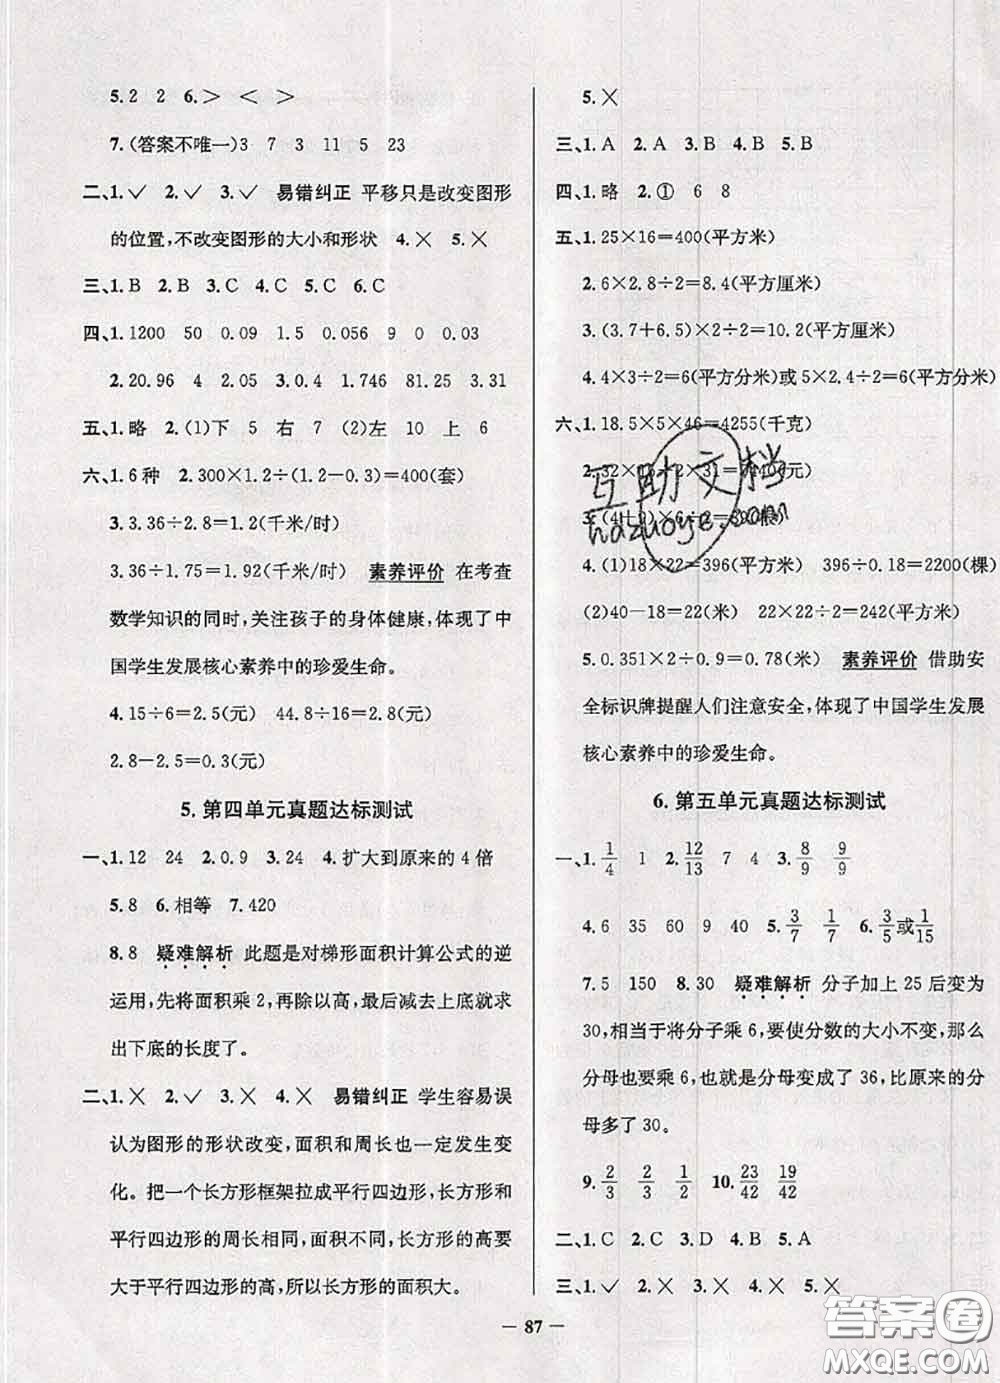 5.2 2 6.＞ ＜ ＞
7.(答案不唯一)3 7 3 11 5 23
二、1.✓ 2.✓ 3.✓ 易错纠正 平移只是改变图形
的位置,不改变图形的大小和形状 4.✕ 5.✕
三、1.B 2.B 3.C 4.C 5.C 6.C
四、1.1200 50 0.09 1.5 0.056 9 0 0.03
2.20.96 4 2.05 3.0.4 1.746 81.25 3.31
五、1.略 2.(1)下 5 右 7 (2)左 10 上 6
六、1.6种 2.300×1.2÷(1.2－0.3)=400(套)
3.3.36÷2.8=1.2(千米/时)
3.36÷1.75=1.92(千米/时) 素养评价 在考查
数学知识的同时,关注孩子的身体健康,体现了中
国学生发展核心素养中的珍爱生命。
4.15÷6=2.5(元) 44.8÷16=2.8(元)
2.8－2.5=0.3(元)
5.第四单元真题达标测试
一、1.12 24 2.0.9 3.24 4.扩大到原来的4倍
5.8 6.相等 7.420
8.8 疑难解析 此题是对梯形面积计算公式的逆
运用,先将面积乘2,再除以高,最后减去上底就求
出下底的长度了。
二、1.✕ 2.✓ 3.✕ 4.✕ 易错纠正 学生容易误
认为图形的形状改变,面积和周长也一定发生变
化。把一个长方形框架拉成平行四边形,长方形和
平行四边形的周长相同,面积不同,长方形的高要
大于平行四边形的高,所以长方形的面积大。
5.✕
三、1.A 2.A 3.B 4.B 5.B
四、1.略 2.① 6 8
五、1.25×16=400(平方米)
2.6×2.8÷2=8.4(平方厘米)
3.(3.7+6.5)×2÷2=10.2(平方厘米)
4.4×3÷2=6(平方分米)或5×2.4÷2=6(平方分米)
六、1.18.5×5×46=4255(千克)
互助文档
hazuoye.com
4.(1)18×22=396(平方米) 396÷0.18=2200(棵)
(2)40－18=22(米) 22×22÷2=242(平方米)
5.0.351×2÷0.9=0.78(米) 素养评价 借助安
全标识牌提醒人们注意安全,体现了中国学生发展
核心素养中的珍爱生命。
6.第五单元真题达标测试
一、1.1/4 1 2.12/13 7 4 3.8/9 9/9
4.6 35 60 9 40 5.3/7 1/7 6.3/5或1/15
7.5 150 8.30 疑难解析 分子加上25后变为
30,相当于将分子乘6,要使分数的大小不变,那么
分母也需要乘6,也就是分母变成了36,比原来的分
母多了30。
9.2/3 2/3 1/2 10.23/42 19/42
二、1.C 2.C 3.D 4.B 5.A
三、1.✓ 2.✕ 3.✕ 4.✕ 5.✕
— 87 —
答案圈
MXQE.COM